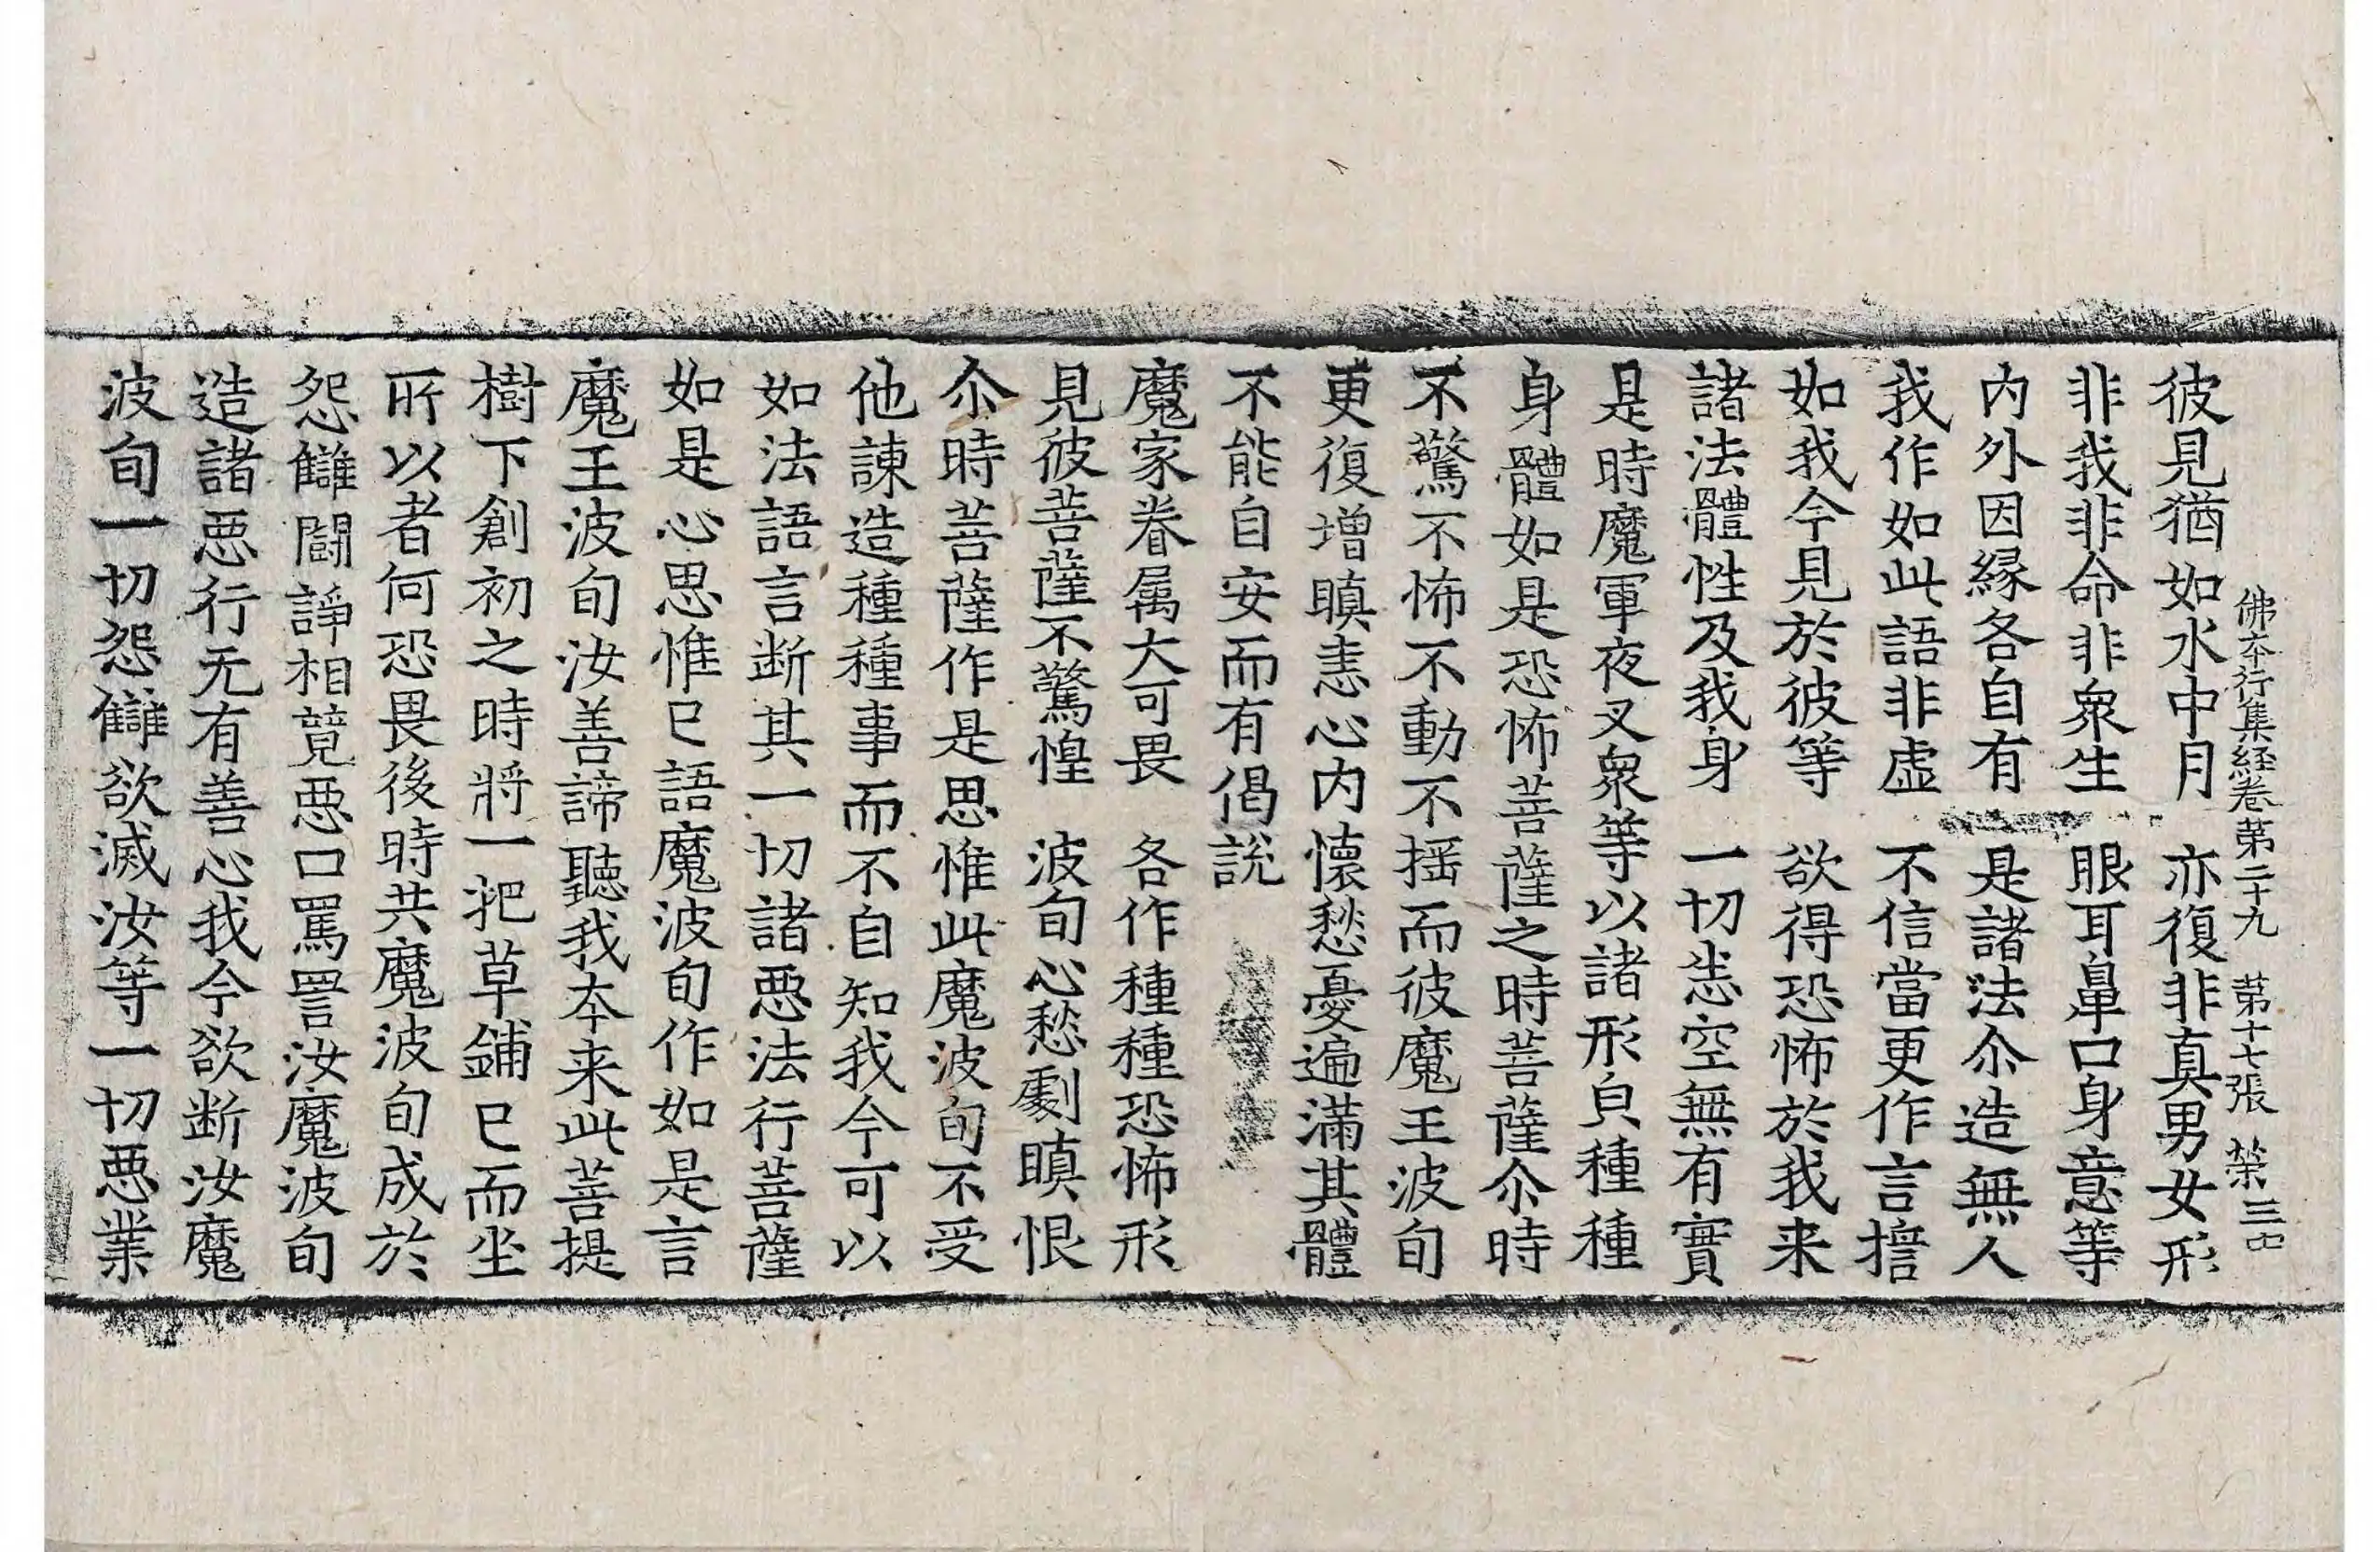 佛夲行集経卷第二十九 第十七張 榮
彼見猶如水中月 亦復非真男女形
非我非命非衆生 眼耳鼻口身意等
内外因縁各自有 是諸法尒造無人
我作如此語非虚 不信當更作言擔
如我今見於彼等 欲得恐怖於我来
諸法體性及我身 一切悉空無有實
是時魔軍夜叉衆等以諸形皃種種
身體如是恐怖菩薩之時菩薩尒時
不驚不怖不動不揺而彼魔王波旬
更復增瞋恚心内懷愁憂遍滿其體
不能自安而有偈說
魔家眷属大可畏 各作種種恐怖形
見彼菩薩不驚惶 波旬心愁劇瞋恨
尒時菩薩作是思惟此魔波旬不受
他諫造種種事而不自知我今可以
如法語言断其一切諸悪法行菩薩
如是心思惟已語魔波旬作如是言
魔王波旬汝善諦聽我夲来此菩提
樹下創初之時將一把草鋪已而坐
所以者何恐畏後時共魔波旬成於
怨讎闘諍相競悪口罵詈汝魔波旬
造諸悪行无有善心我今欲断汝魔
波旬一切怨讎欲滅汝等一切悪業